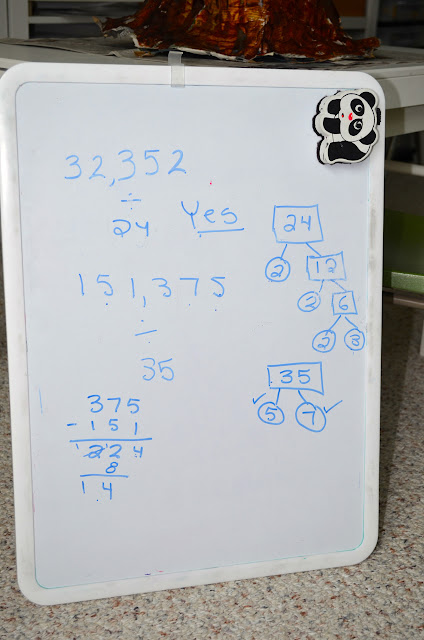 32,352
÷
24 Yes
151,375
÷
35
375
- 151
1 2 1 2 4
8
1 4
24
2 12
2 6
2 3
.35
✓ 5 7 ✓